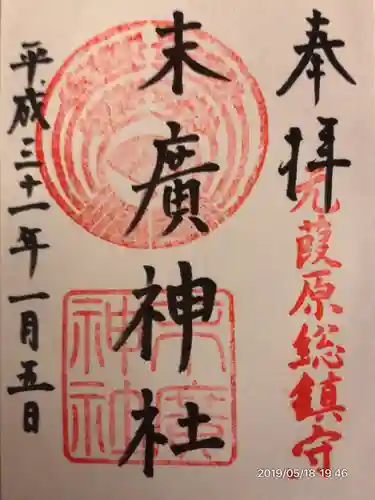 奉拝
元葭原総鎮守
末廣神社
末廣
神社
平成三十一年一月五日
2019/05/18 19:46